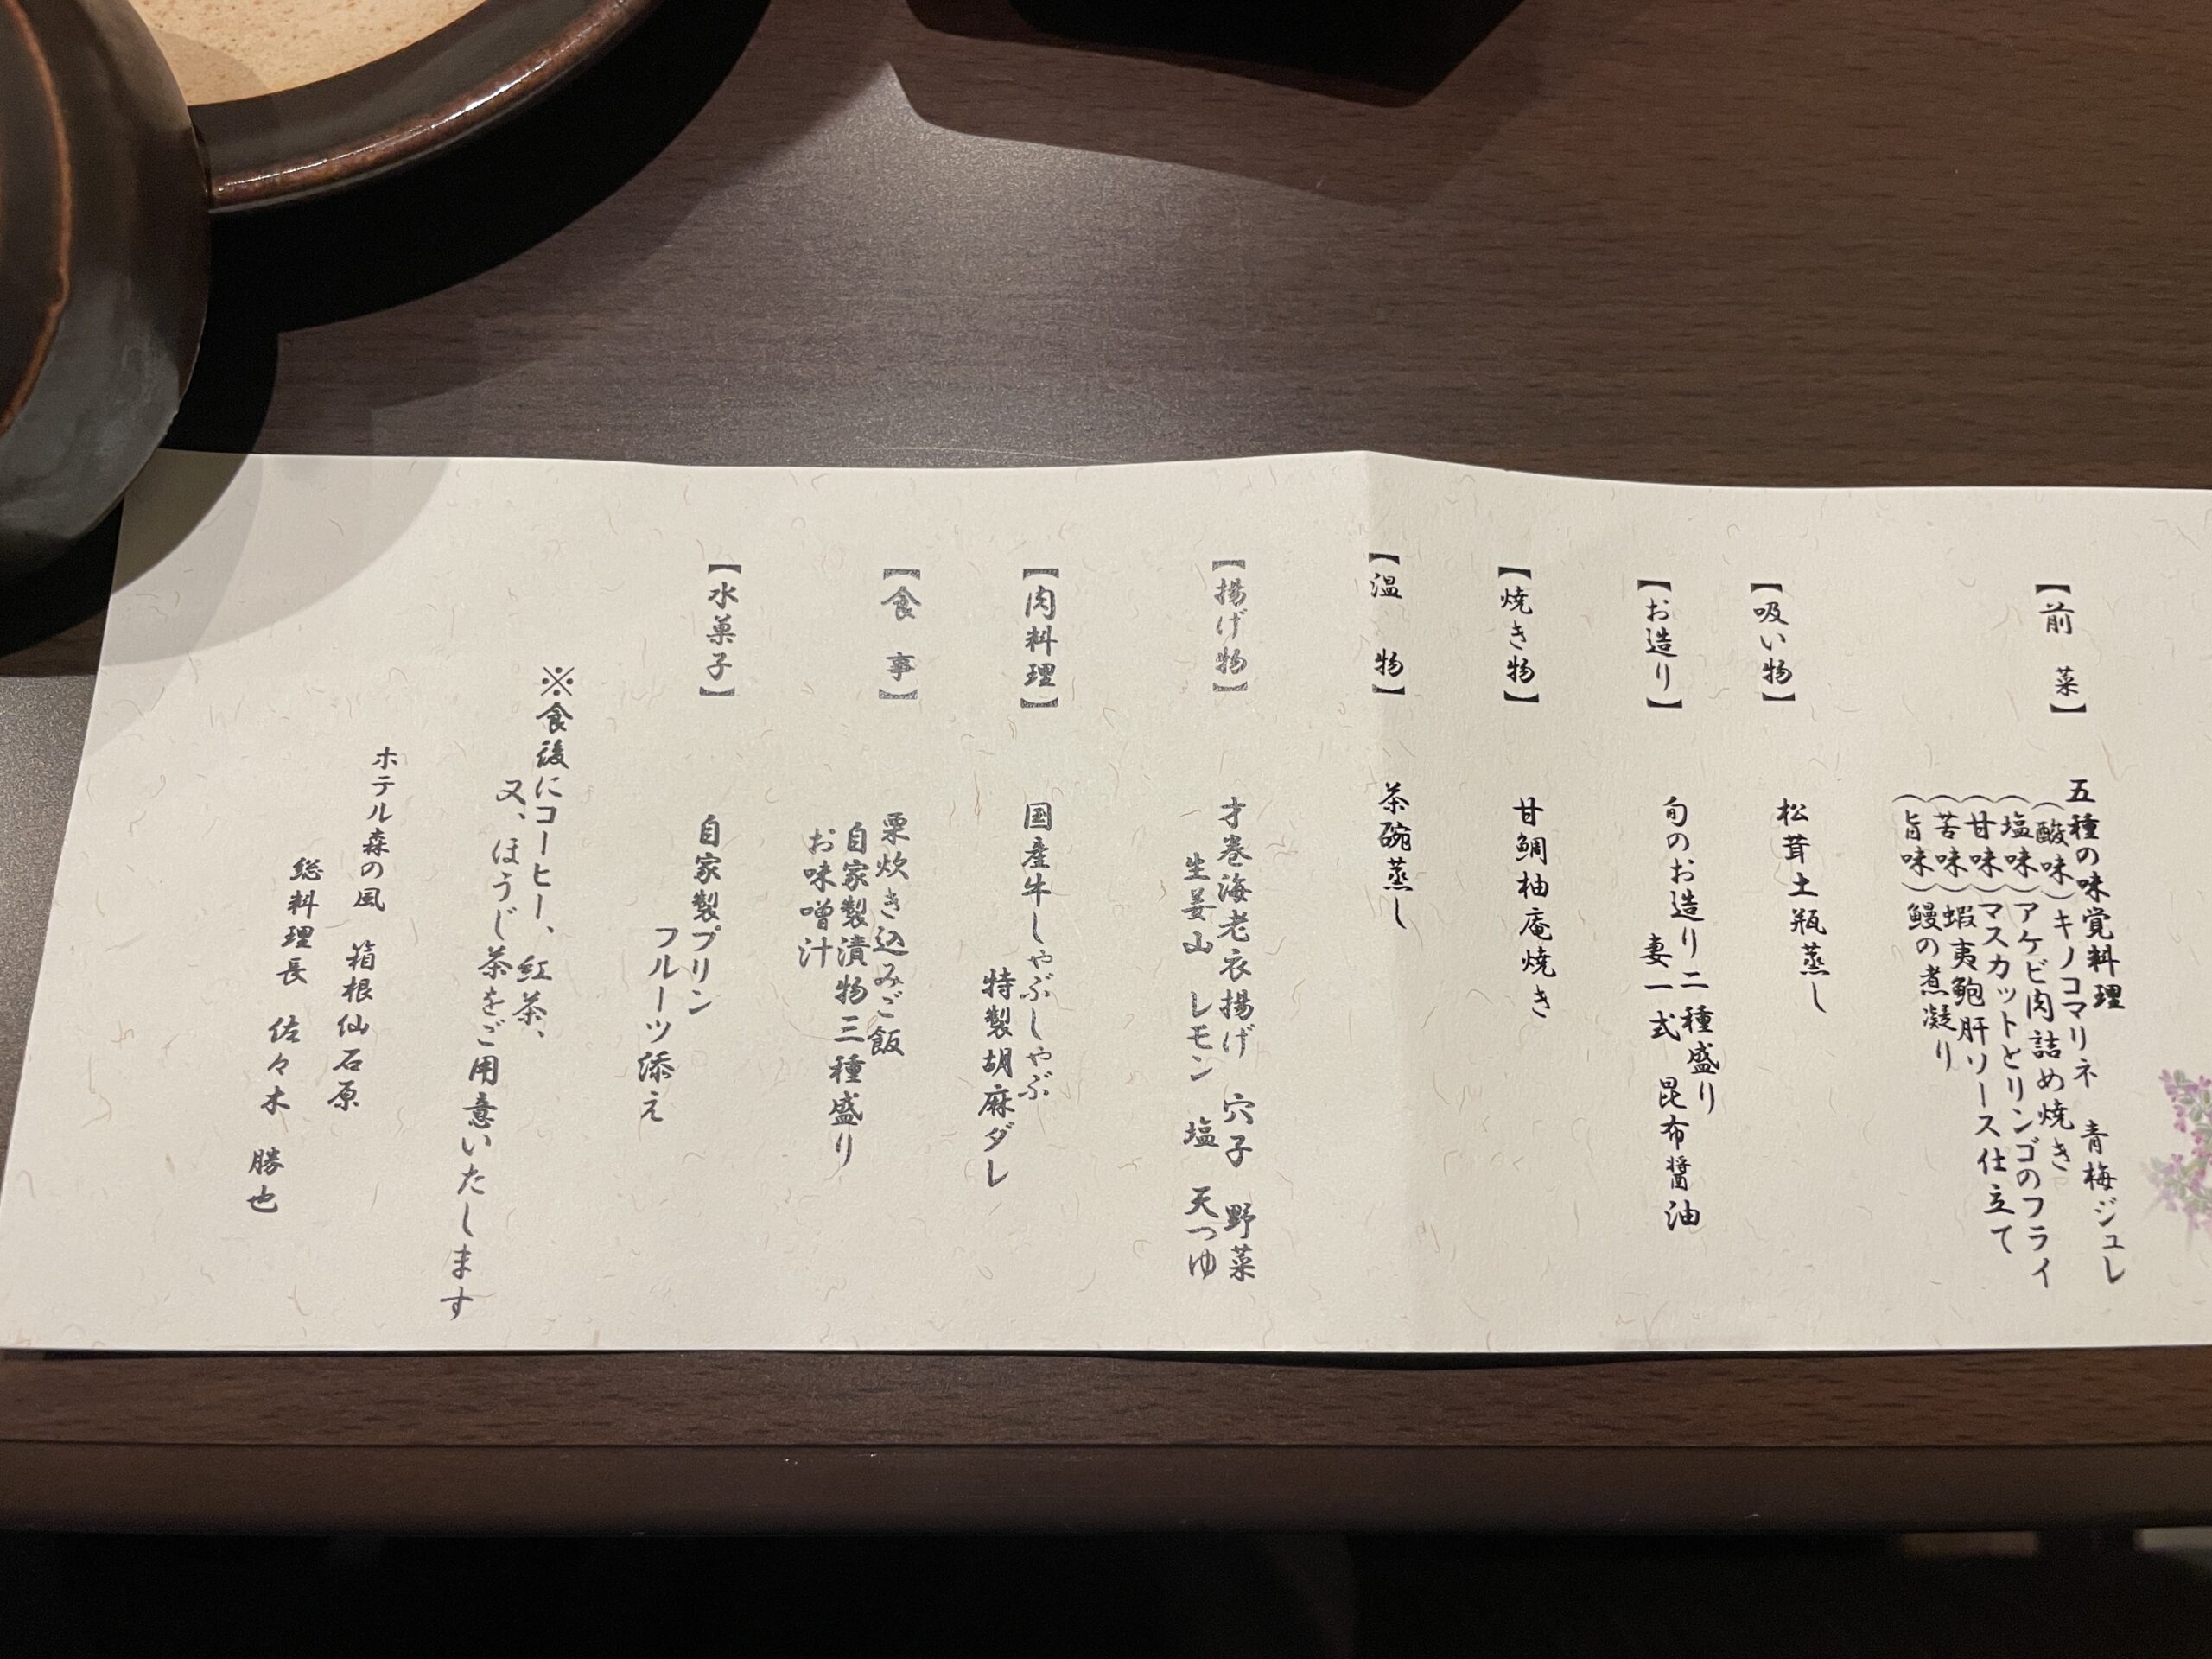 【前　菜】　五種の味覚料理
(酸味)キノコマリネ　青梅ジュレ
(塩味)アケビ肉詰め焼き
(甘味)マスカットとリンゴのフライ
(苦味)蝦夷鮑肝ソース仕立て
(旨味)鰻の煮凝り
【吸い物】　松茸土瓶蒸し
【お造り】　旬のお造り二種盛り
妻一式　昆布醤油
【焼き物】　甘鯛柚庵焼き
【温　物】　茶碗蒸し
【揚げ物】　才巻海老衣揚げ　穴子　野菜
生姜山　レモン　塩　天つゆ
【肉料理】　国産牛しゃぶしゃぶ
特製胡麻ダレ
【食　事】　栗炊き込みご飯
自家製漬物三種盛り
お味噌汁
【水菓子】　自家製プリン
フルーツ添え
※食後にコーヒー、紅茶、
又、ほうじ茶をご用意いたします
ホテル森の風　箱根仙石原
総料理長　佐々木　勝也